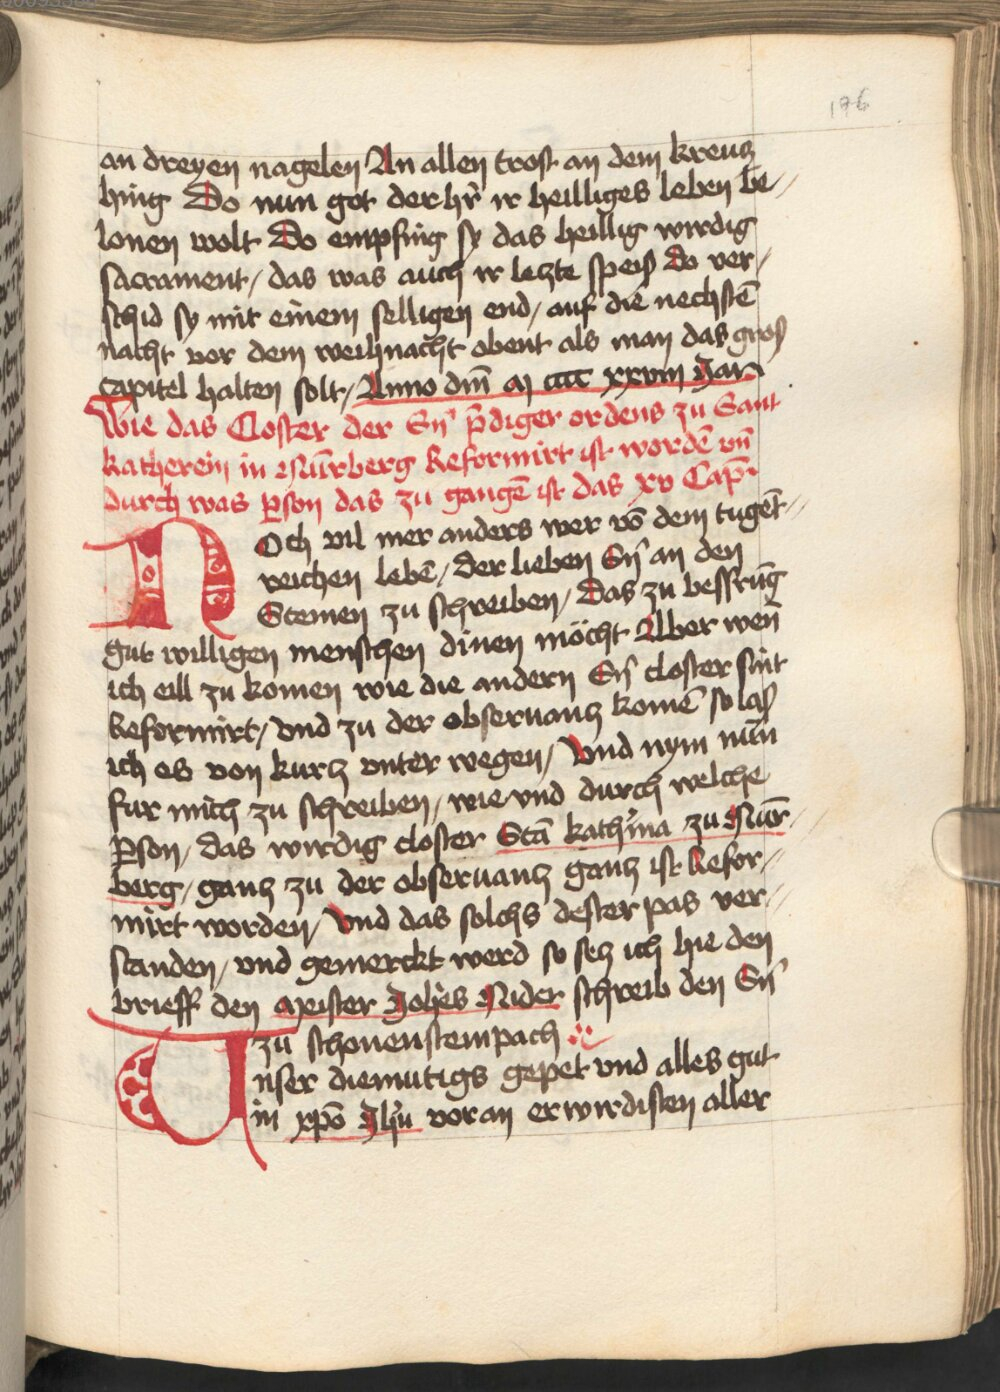 176
an dreyen nagelen An allen trost an dem kreutz
hing Do nun got der hr̄ ir heilliges leben be⸗
lonen wolt Do empfing sy das heillig wirdig
sacrament / das was auch ir letzte speiß Do ver /
schid sy mit einem selligen end / auf die nechstē
nacht vor dem weihnacht obent als man das groß
capitel halten solt / Anno dm̄ M cccc xxviii Jar
Wie das Closter der Sn̄ p̄diger ordens zu Sant
katherein in Nūrberg Reformirt ist wordē vn̄
durch was ꝑson das zu gangē ist das xv Cap̄
NOch vil mer anders wer vō dem tugēt⸗
reichen lebē / der lieben Sn̄ an den
Stemen zu schreiben / Das zu bessrūg
gut willigen menschen dinen möcht Alber wen̄
ich eill zu komen wie die andern Sn̄ closter sint
Reformirt / vnd zu der obseruantz komē so laß
ich es von kurtz vnter wegen / Vnd nym nūn
fur mich zu schreiben / wie vnd durch welche
ꝑson / das wirdig closter Sctā kathīna zu Nūr⸗
berg / gantz zu der obseruantz gantz ist Refor⸗
mirt worden / Vnd das solchs dester pas ver⸗
standen / vnd gemerckt werd so setz ich hie den
brieff den Meister Joh̄es Nider schreib den Sn̄
zu schonenstempach
Vnser diemutigs gepet vnd alles gut
in xp̄o Jh̄u voran erwirdisten aller